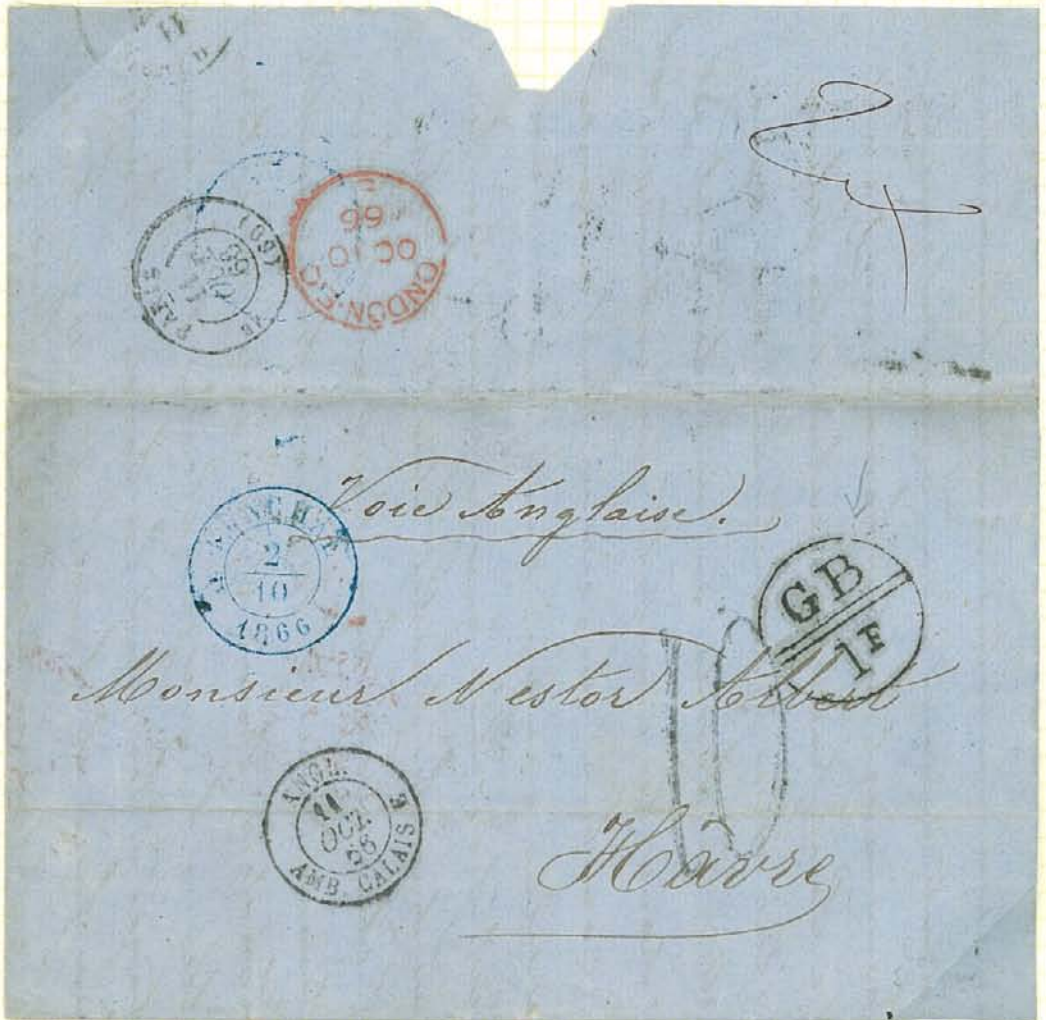 PARIS
(60)
LONDON·E.C
OC 10
66
Voie Anglaise.
2
10
1866
GB
1F
Monsieur Nestor
10
ANGL.
11
OCT.
66
AMB. CALAIS E
Hâvre